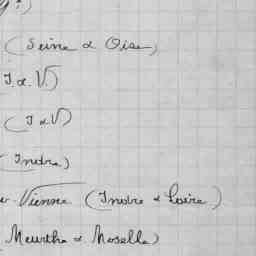 (Seine & Oise)
I. & V.)
(I & V)
(Indre)
Vienne (Indre & Loire)
Meurthe & Moselle)